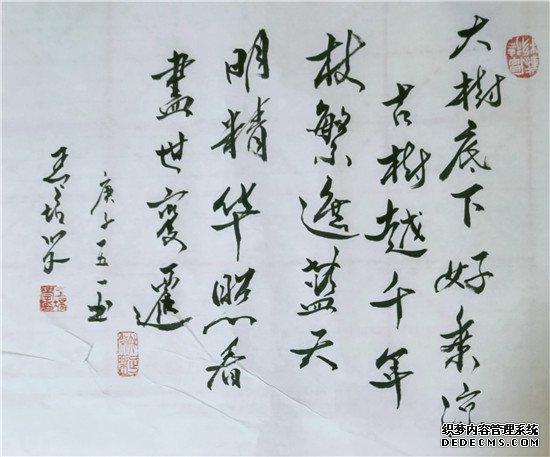 大樹底下好乘凉
古樹越千年
枝繁遮蓝天
明精华照看
盡世变遷
庚子五一
织梦内容管理系统
DEDECMS.COM